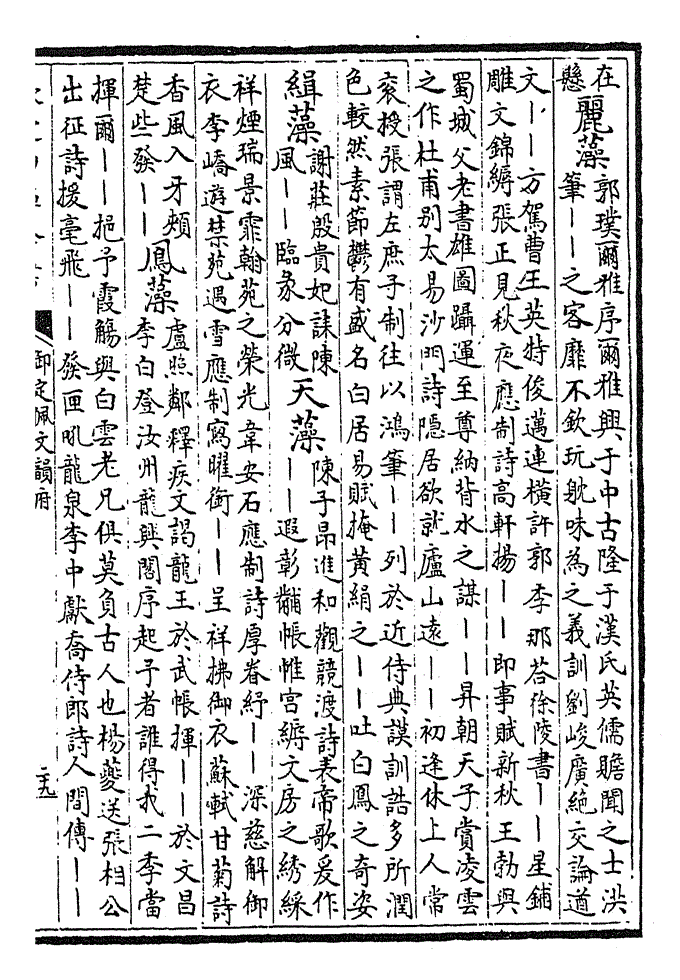 在
懸
麗藻
郭璞爾雅序爾雅興于中古隆于漢氏英儒贍聞之士洪
筆——之客靡不欽玩躭味為之義訓劉峻廣絶交論道
文——方駕曹王英特俊邁連橫許郭李那荅徐陵書——星鋪
雕文錦縟張正見秋夜應制詩高軒揚——即事賦新秋王勃與
蜀城父老書雄圖躡運至尊納背水之謀——昇朝天子賞凌雲
之作杜甫別太易沙門詩隱居欲就廬山遠——初逢休上人常
衮授張謂左庶子制往以鴻筆——列於近侍典謨訓誥多所潤
色較然素節鬱有盛名白居易賦掩黃絹之——吐白鳳之奇姿
緝藻
謝莊殷貴妃誄陳
風——臨彖分微
天藻
陳子昂進和觀競渡詩表帝歌爰作
——遐彰黼帳帷宮縟文房之綉綵
祥煙瑞景霏翰苑之榮光韋安石應制詩厚眷紓——深慈解御
衣李嶠遊禁苑遇雪應制寫曜銜——呈祥拂御衣蘇軾甘菊詩
香風入牙頰
楚些發——
鳳藻
盧照鄰釋疾文謁龍王於武帳揮——於文昌
李白登汝州龍興閣序起予者誰得我二季當
揮爾——挹予霞觴與白雲老兄俱莫負古人也楊夔送張相公
出征詩援毫飛——發匣吼龍泉李中獻喬侍郎詩人間傳——
御定佩文韻府
二十九